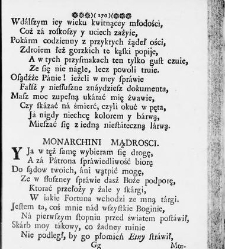 (170)
W dálszym iey wieku kwitnącey młodości,
Coż zá roskoszy y uciech zażyie,
Pokárm codzienny z przykrych żądeł ości,
Zdroiem łez gorzkich te kąski popije,
A w tych przysmakach ten tylko gust czuie,
Że się nie nagle, lecz powoli truie.
Osądźże Panie! ieżeli w mey spráwie
Fałsz y niesłuszne znáydziesz dokumenta,
Masz moc zupełną ukárać mię żwawie,
Czy skázáć ná śmierć, czyli okuć w pęta,
Ja nigdy niechcę kolorem y bárwą,
Mieszáć się z iedną niestáteczną lárwą.
MONARCHINI MĄDROSCI.
Y Ja w też sámę wybieram się drogę,
A zá Pátrona spráwiedliwość biorę
Do sądow twoich, áni wątpić mogę,
Ze w słuszney spráwie dasz Boże podporę,
Ktoráć przełoży y żale y skárgi,
W iákie Fortuna wchodzi ze mną tárgi.
Jestem ta, coś mnie nád wszystkie Boginie,
Ná pierwszym stopniu przed światem postáwił,
Skárb moy takowy, co żadney ninie
Nie podległ, by go płomień Etny stráwił,
Gg
Mor-